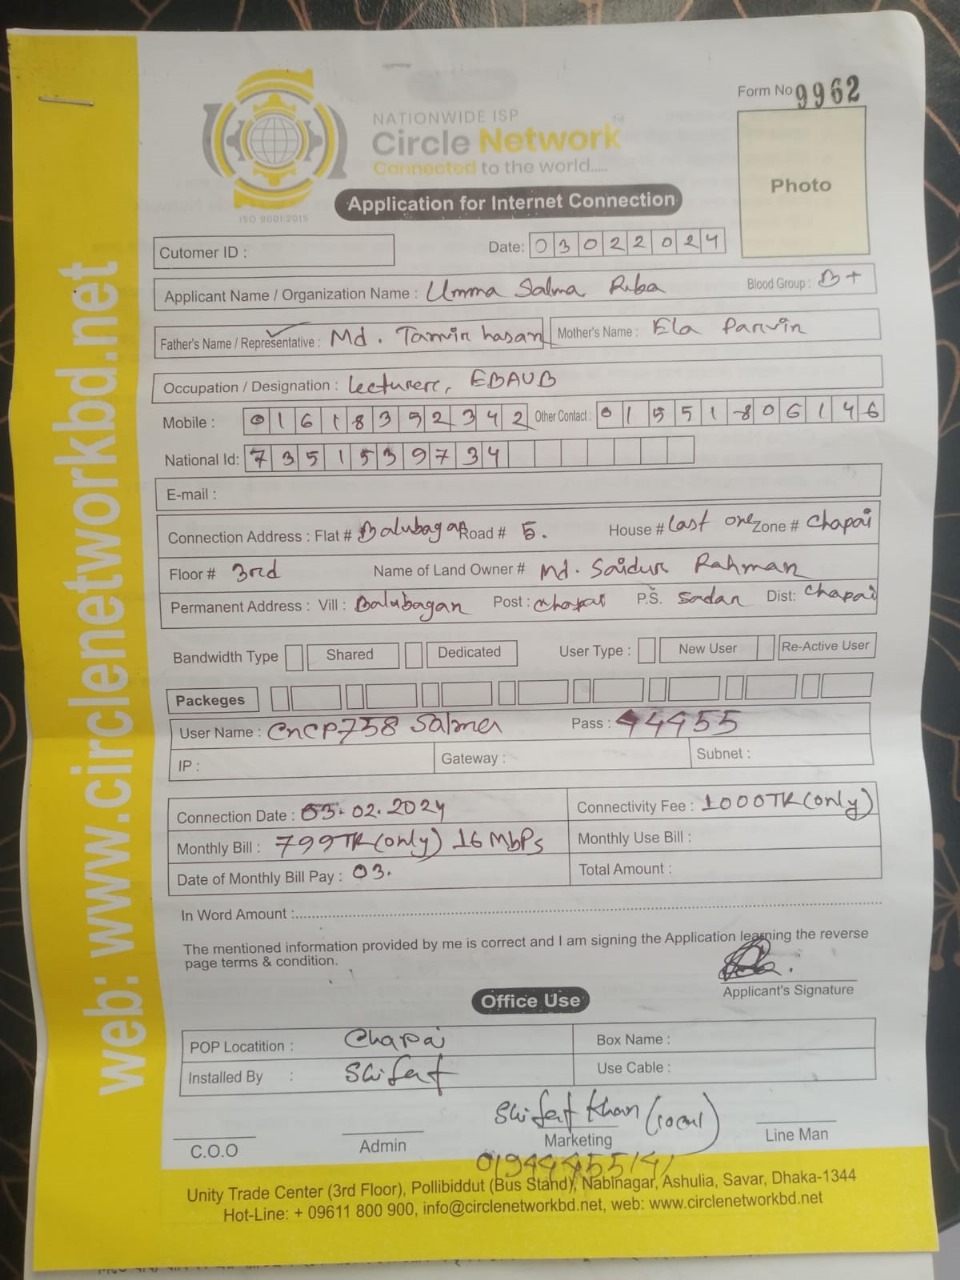 Form No 9962
NATIONWIDE ISP
Circle Network
Connected to the world.....
ISO 9001:2015
Photo
Application for Internet Connection
Cutomer ID :
Date: 03022024
Applicant Name / Organization Name : Umma Salma Riba Blood Group : B+
Father's Name / Representative : Md. Tamvir hasan Mother's Name : Ela Parvin
Occupation / Designation : Lecturere, EBAUB
Mobile : 01618392342 Other Contact : 01551806146
National Id: 7351539734
E-mail :
Connection Address : Flat # Balubagan Road # 5. House # Last one Zone # Chapai
Floor # 3rd Name of Land Owner # Md. Saidur Rahman
Permanent Address : Vill : Balubagan Post : Chapai P.S. Sadar Dist: Chapai
Bandwidth Type Shared Dedicated User Type : New User Re-Active User
Packeges
User Name : CNCP758 Salma Pass : 44455
IP : Gateway : Subnet :
Connection Date : 03.02.2024 Connectivity Fee : 1000TK(only)
Monthly Bill : 799TK(only) 16 MbPs Monthly Use Bill :
Date of Monthly Bill Pay : 03. Total Amount :
In Word Amount :
The mentioned information provided by me is correct and I am signing the Application learning the reverse
page terms & condition.
Applicant's Signature
Office Use
POP Locatition : Chapai Box Name :
Installed By : Shifat Use Cable :
Shifat Khan (local)
C.O.O Admin Marketing Line Man
Unity Trade Center (3rd Floor), Pollibiddut (Bus Stand), Nabinagar, Ashulia, Savar, Dhaka-1344
Hot-Line: + 09611 800 900, info@circlenetworkbd.net, web: www.circlenetworkbd.net
web: www.circlenetworkbd.net